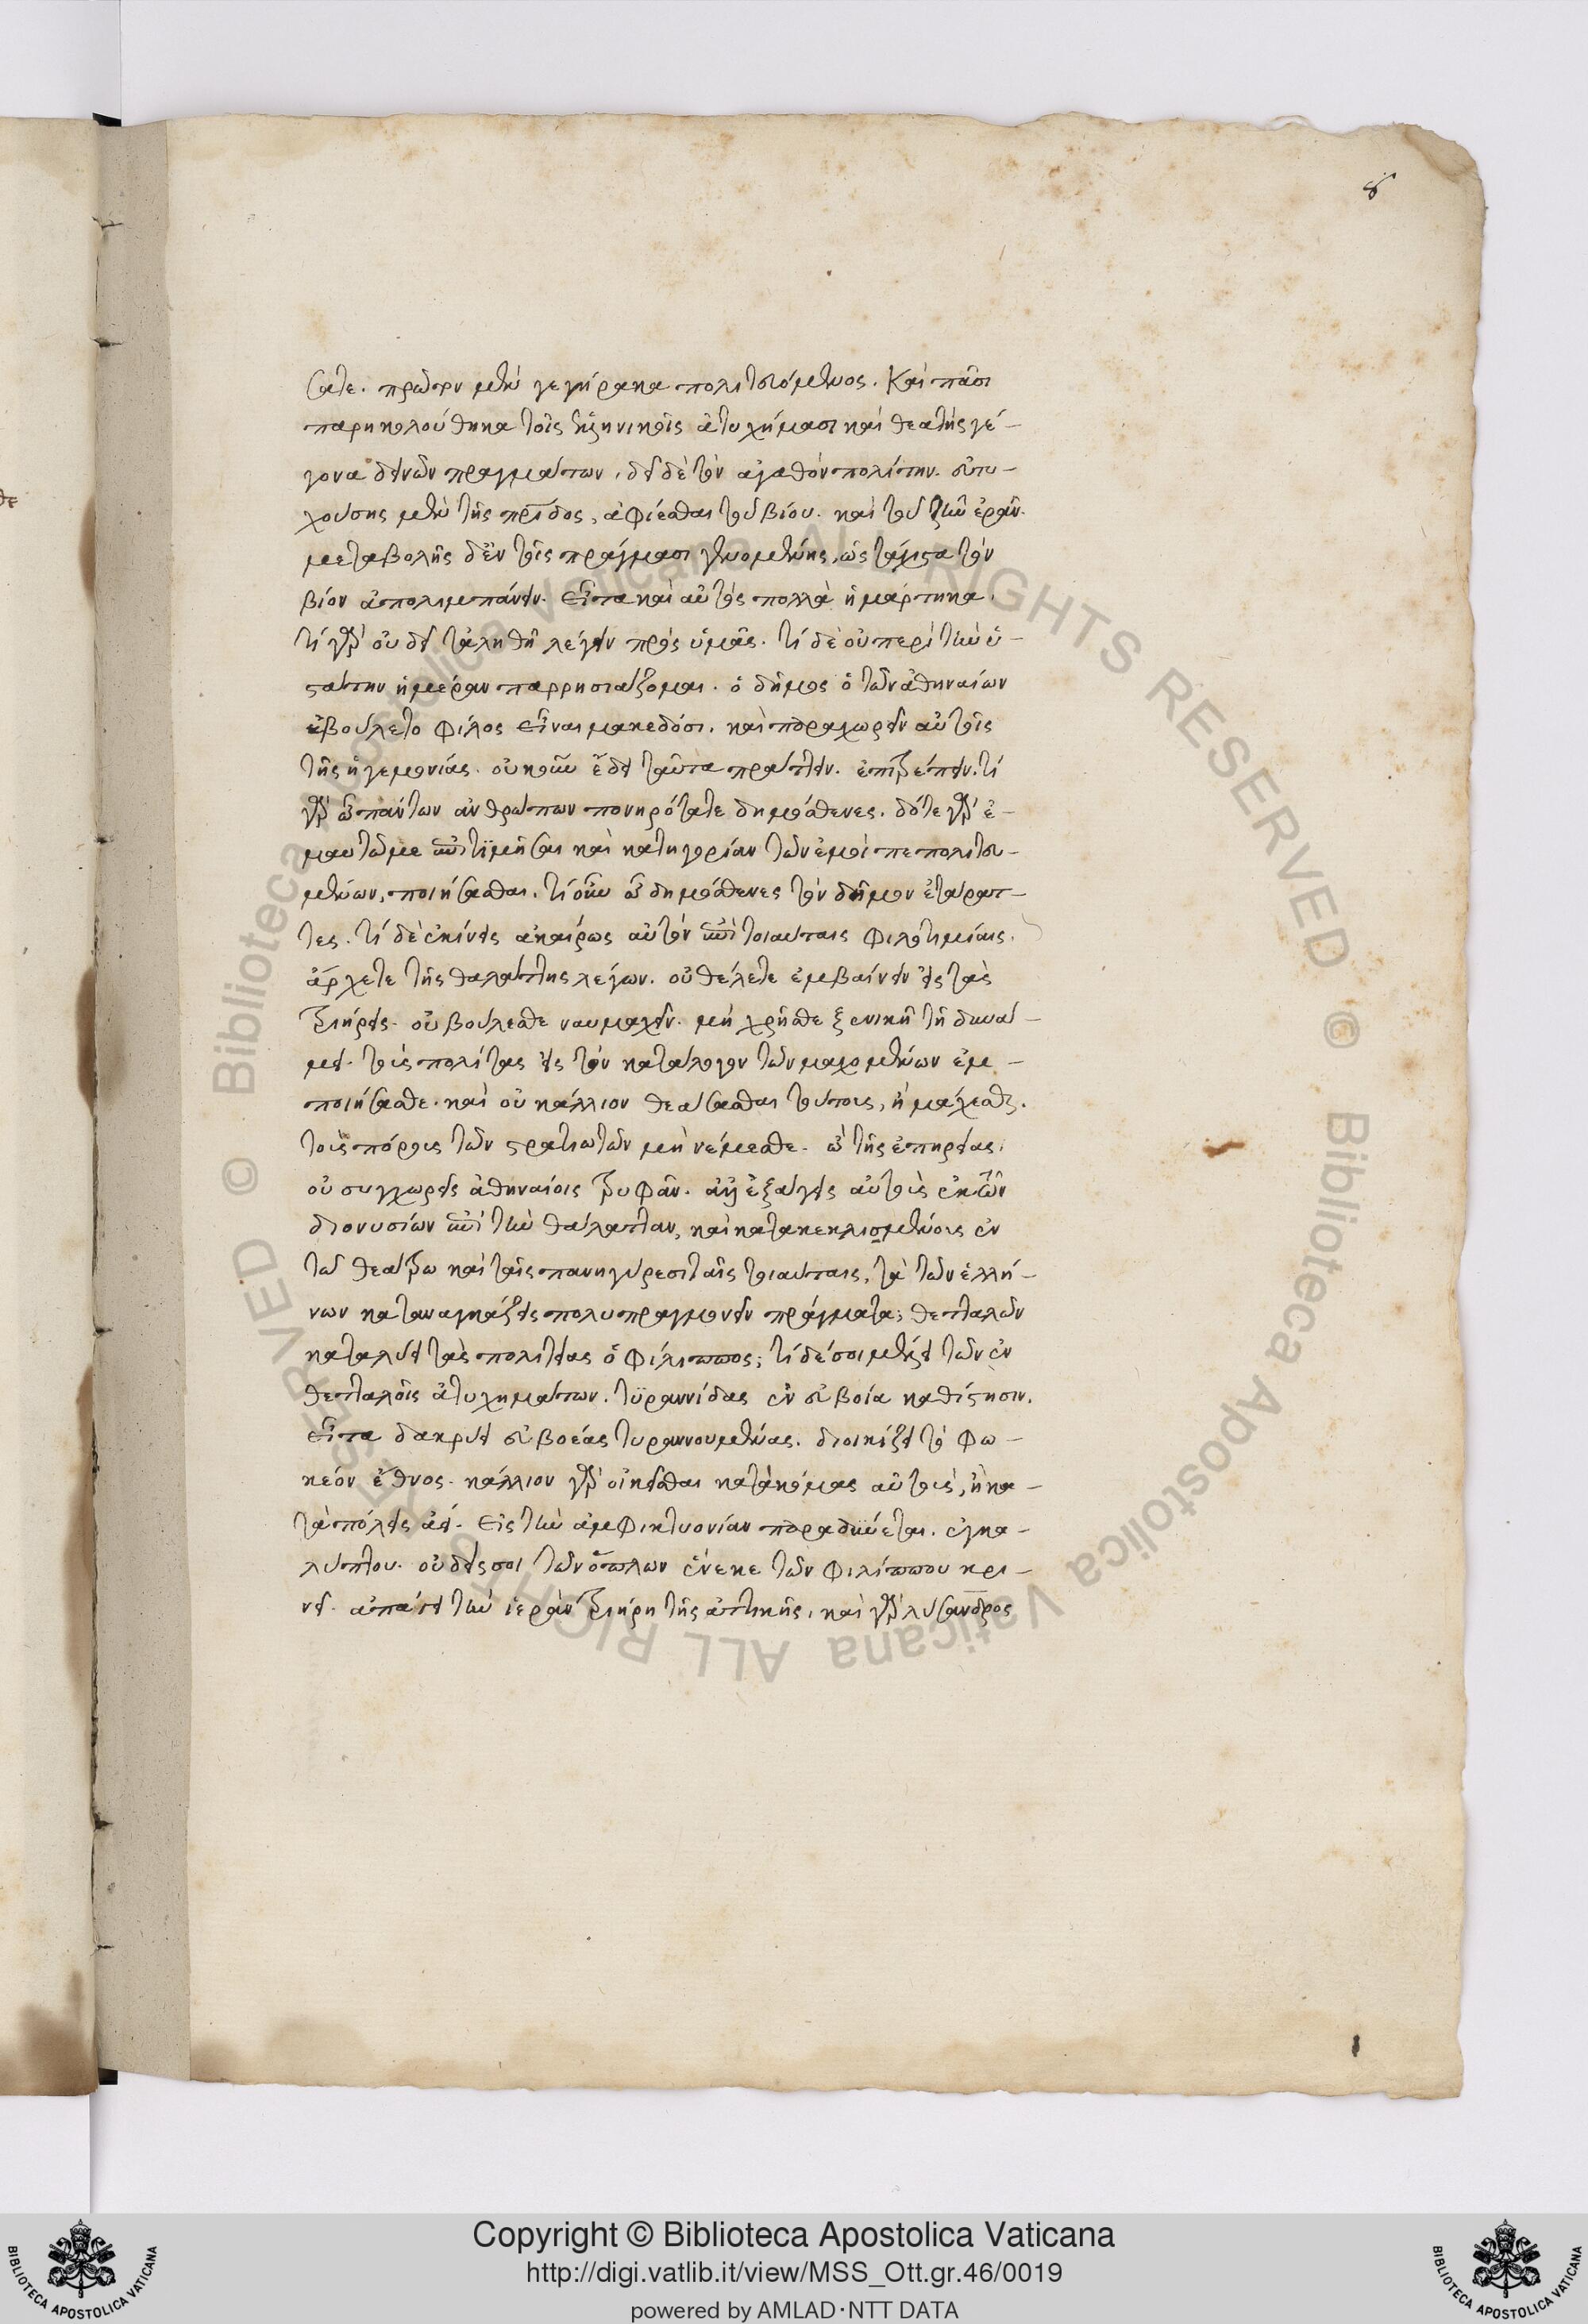 8
σατε. πρῶτον μὲν γεγήρακα πολιτευόμενος. Καὶ πᾶσι
παρηκολούθηκα τοῖς ἑλληνικοῖς ἀτυχήμασι καὶ θεατὴς γέ-
γονα δεινῶν πραγμάτων. δεῖ δὲ τὸν ἀγαθὸν πολίτην. εὐτυ-
χούσης μὲν τῆς πρίδος, ἀφίεσθαι τοῦ βίου. καὶ τοῦ ζῆν ἐρᾶν.
μεταβολῆς δ' ἐν τοῖς πράγμασι γενομένης, ὡς τάχιστα τὸν
βίον ἀπολιμπάνειν. εἶτα καὶ αὐτὸς πολλὰ ἡμάρτηκα.
τί γὰρ οὐ δεῖ τἀληθῆ λέγειν πρὸς ὑμᾶς. τί δὲ οὐ περὶ τὴν ὑ-
στάτην ἡμέραν παρρησιάζομαι. ὁ δῆμος ὁ τῶν ἀθηναίων
ἐβούλετο φίλος εἶναι μακεδόσι. καὶ παραχωρεῖν αὐτοῖς
τῆς ἡγεμονίας. οὐκοῦν ἔδει ταῦτα πράττειν. ἐπιτρέπειν. τί
γὰρ ὦ πάντων ἀνθρώπων πονηρότατε δημόσθενες. δότε γὰρ ἐ-
μαυτῶ με ἐπιτιμῆσαι καὶ κατηγορίαν τῶν ἐμοὶ πεπολιτευ-
μένων, ποιήσασθαι. τί οὖν ὦ δημόσθενες τὸν δῆμον ἐτάρατ-
τες. τί δὲ ἐκίνεις ἀκαίρως αὐτὸν ἐπὶ τοιαύταις φιλοτιμίαις.
ἄρχετε τῆς θαλάττης λέγων. οὐ θέλετε ἐμβαίνειν εἰς τὰς
τριήρεις. οὐ βούλεσθε ναυμαχεῖν. μὴ χρῆσθε ξενικῆ τῆ δυνά-
μει. τοὺς πολίτας εἰς τὸν κατάλογον τῶν μαχομένων ἐμ-
ποιήσασθε. καὶ οὐ κάλλιον θεάσασθαι τούτοις, ἢ μάχεσθαι.
τοὺς πόρους τῶν στρατιωτῶν μὴ νέμεσθε. ὢ τῆς ἐπηρείας.
οὐ συγχωρεῖς ἀθηναίοις τρυφᾶν. ἀλλ' ἐξάγεις αὐτοὺς ἐκ τῶν
διονυσίων ἐπὶ τὴν θάλατταν, καὶ κατακεκλισμένοις ἐν
τῶ θεάτρω καὶ ταῖς πανηγύρεσι ταῖς τοιαύταις, τὰ τῶν ἑλλή-
νων καταναγκάζεις πολυπραγμονεῖν πράγματα; θετταλῶν
καταλύει τὰς πολιτείας ὁ φίλιππος; τί δέ σοι μέλει τῶν ἐν
θετταλοῖς ἀτυχημάτων. τυραννίδας ἐν εὐβοία καθίστησιν.
εἶτα δακρύει εὐβοέας τυραννουμένας. διοικίζει τὸ φω-
κέον ἔθνος. κάλλιον γὰρ οἰκεῖσθαι κατὰ κόμας αὐτοὺς, ἢ κα-
τὰ πόλεις ἀεί. εἰς τὴν ἀμφικτυονίαν παραδύεται. ἐγκα-
λύπτου. οὐδείς σοι τῶν ὅπλων ἕνεκε τῶν φιλίππου κρι-
νεῖ. ἀπάγει τὴν ἱερὰν τριήρη τῆς ἀττικῆς. καὶ γὰρ λύσανδρος
Copyright © Biblioteca Apostolica Vaticana
http://digi.vatlib.it/view/MSS_Ott.gr.46/0019
powered by AMLAD·NTT DATA